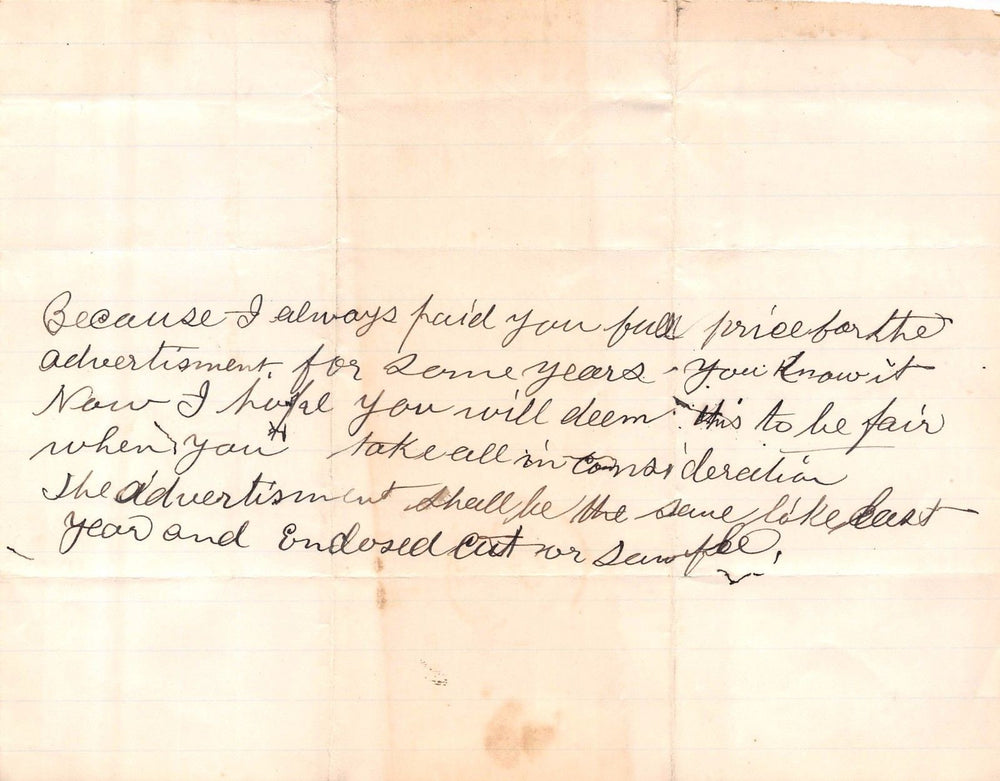 Because I always paid you full price for the
advertisment, for some years - you know it
Now I you will deem this to be fair
when you take all in consideration
The advertisment shall be the same like last
year and Enclosed cut or sample.